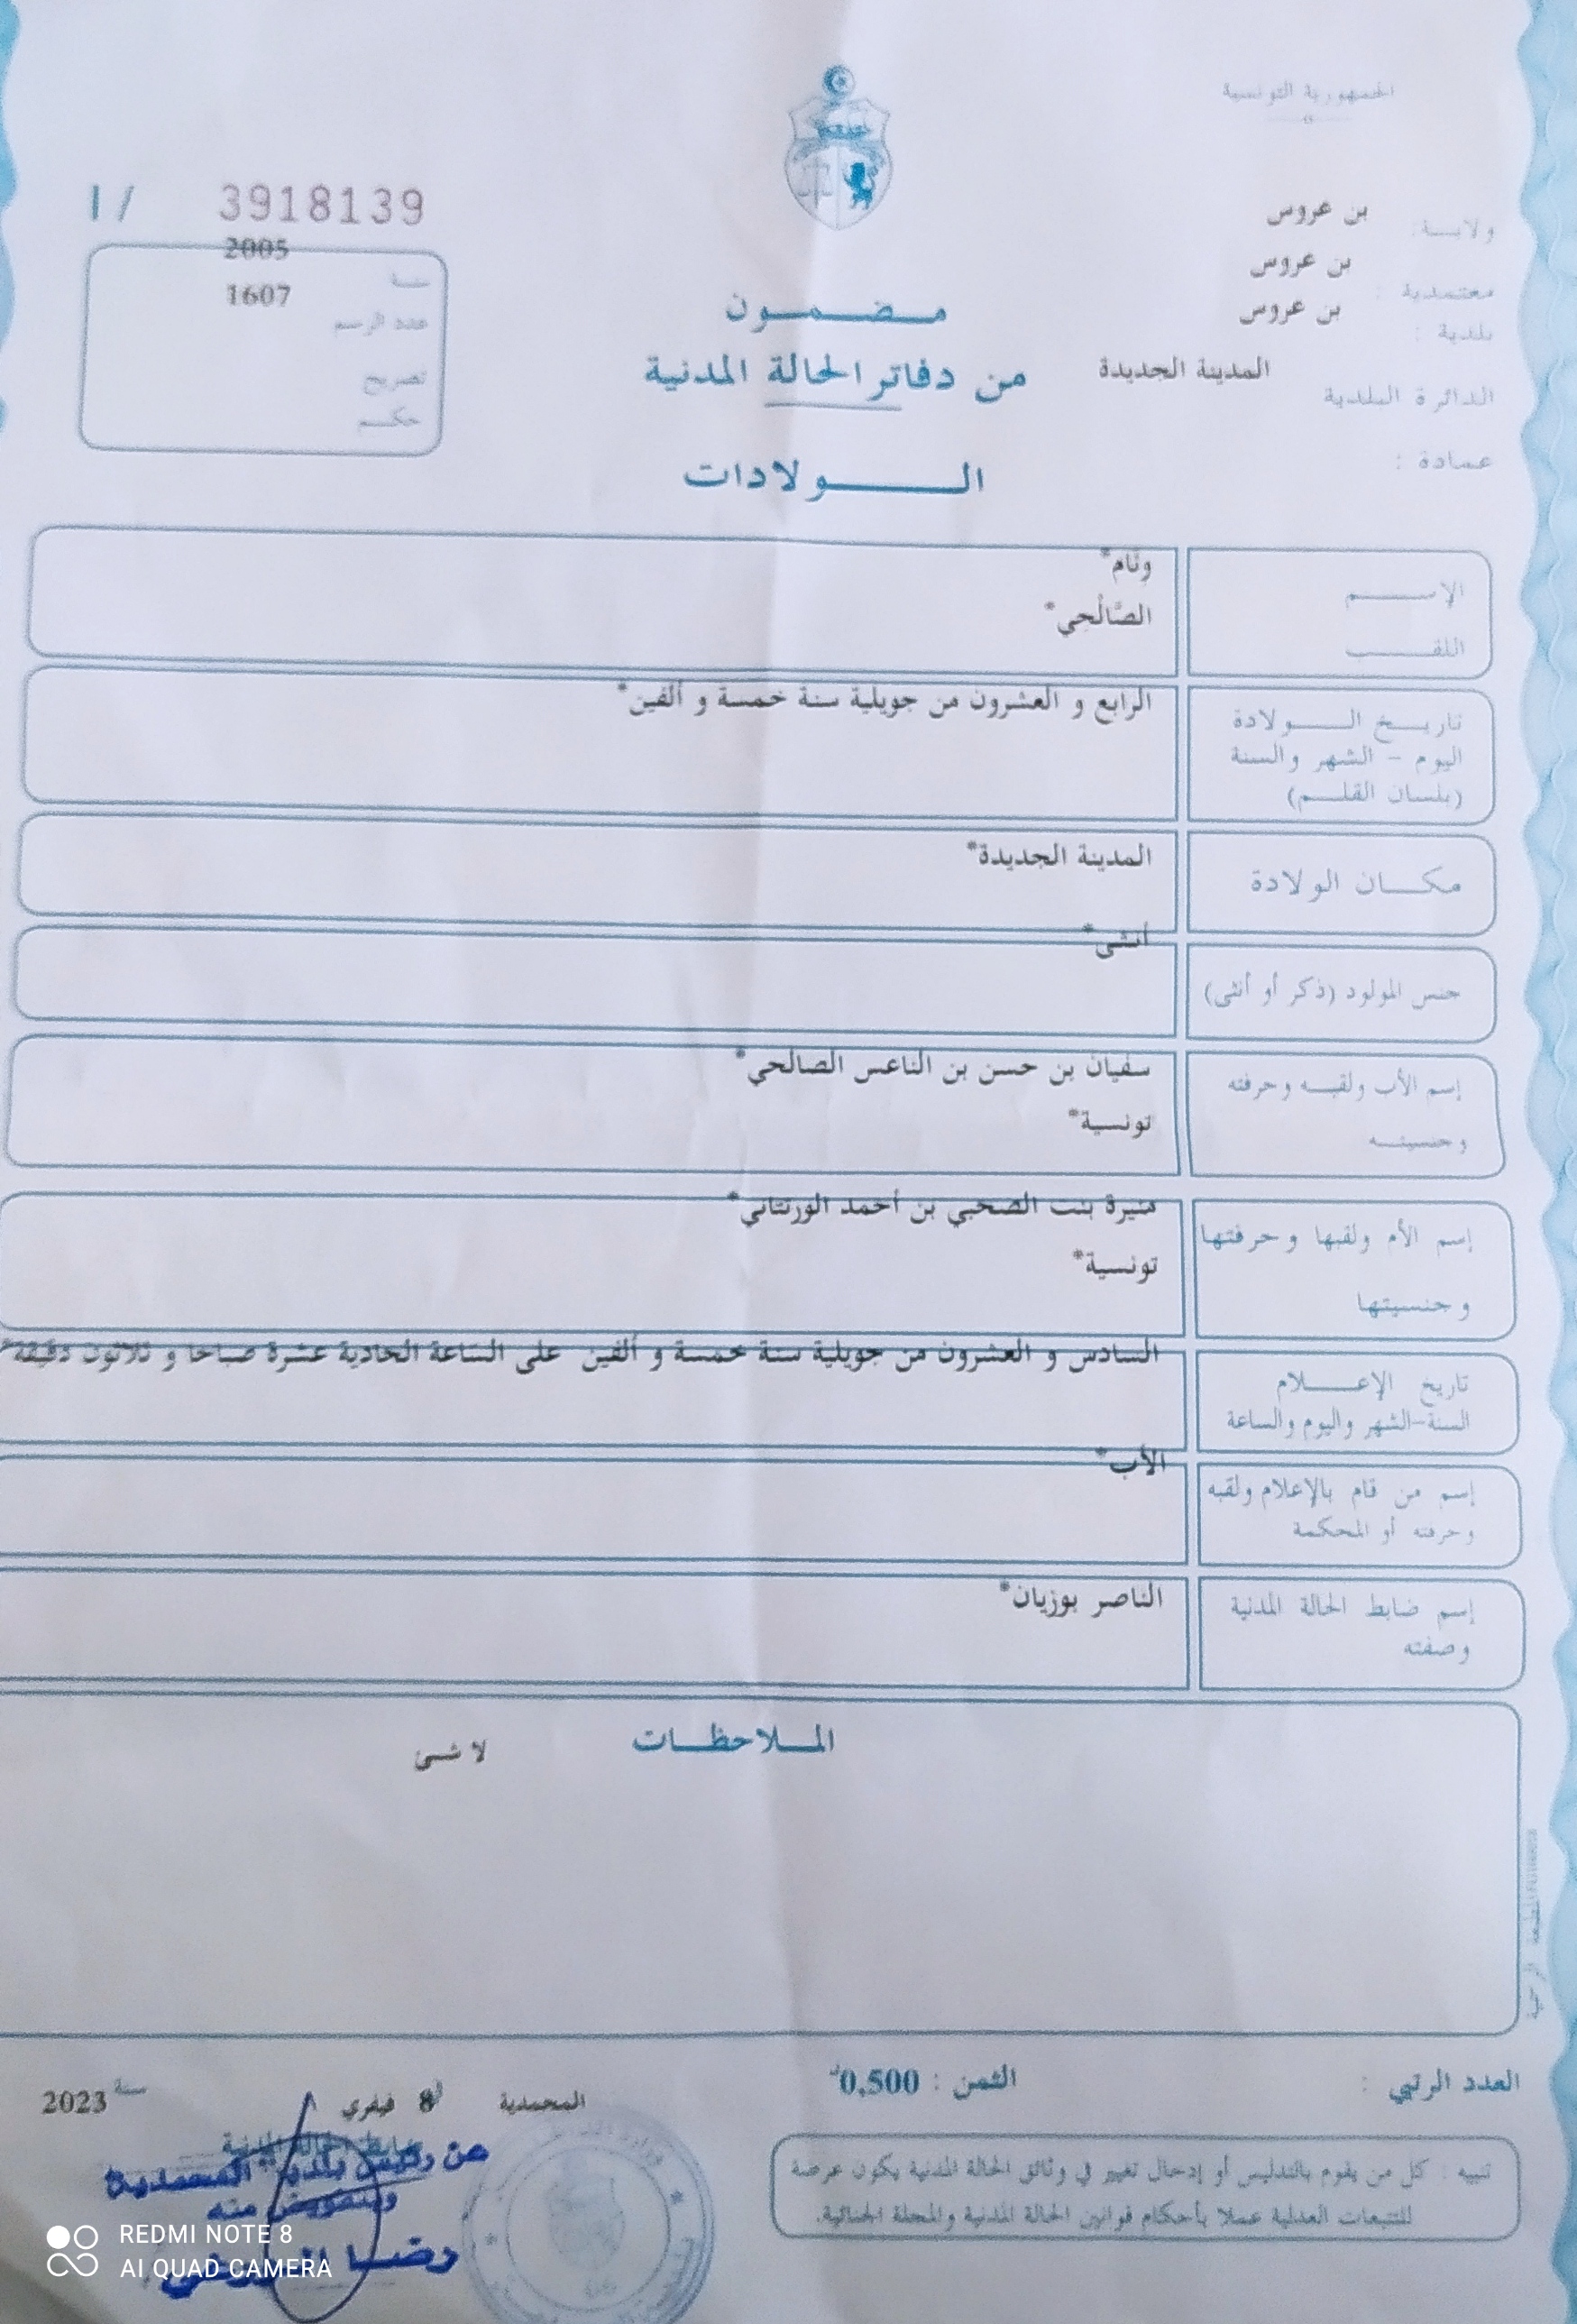 الجمهورية التونسية
ولايــة: بن عروس
معتمدية : بن عروس
بلدية : بن عروس
الدائرة البلدية المدينة الجديدة
عمادة :
I / 3918139
سنة 2005
عدد الرسم 1607
تصريح
حكم
مضمون
من دفاتر الحالة المدنية
الولادات
الإسم وئام*
اللقب الصَّالْحِي*
تاريخ الولادة الرابع و العشرون من جويلية سنة خمسة و ألفين*
اليوم - الشهر والسنة
(بلسان القلم)
مكان الولادة المدينة الجديدة*
جنس المولود (ذكر أو أنثى) أنثى*
إسم الأب ولقبه وحرفته سفيان بن حسن بن الناعس الصالحي*
وجنسيته تونسية*
إسم الأم ولقبها وحرفتها منيرة بنت الصحبي بن أحمد الورتتاني*
وجنسيتها تونسية*
تاريخ الإعلام السادس و العشرون من جويلية سنة خمسة و ألفين على الساعة الحادية عشرة صباحا و ثلاثون دقيقة*
السنة-الشهر واليوم والساعة
إسم من قام بالإعلام ولقبه الأب*
وحرفته أو المحكمة
إسم ضابط الحالة المدنية الناصر بوزيان*
وصفته
الملاحظات
لا شئ
العدد الرتبي :
الثمن : 0,500د
المحمدية 8 فيفري سنة 2023
ضابط الحالة المدنية
عن رئيس بلدية المحمدية
وبتفويض منه
رضا
تنبيه : كل من يقوم بالتدليس أو إدخال تغيير في وثائق الحالة المدنية يكون عرضة
للتتبعات العدلية عملا بأحكام قوانين الحالة المدنية والمجلة الجنائية.
REDMI NOTE 8
AI QUAD CAMERA